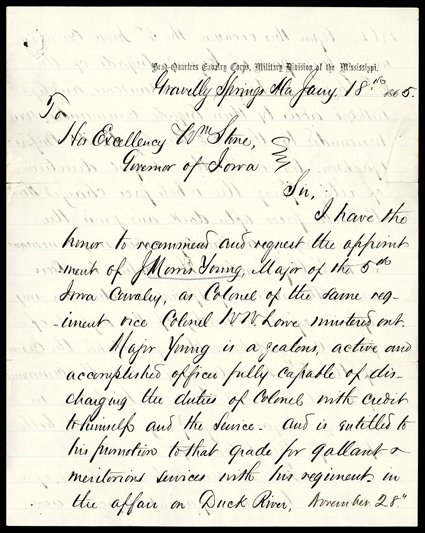 Head-Quarters Cavalry Corps, Military Division of the Mississippi.
Gravelly Springs Ala Jany 18th 1865.
To
His Excellency Wm Stone,
Governor of Iowa
Sir,
I have the
honor to recommend and request the appoint
ment of J Morris Young, Major of the 5th
Iowa Cavalry, as Colonel of the same reg-
-iment vice Colonel W W Lowe mustered out.
Major Young is a zealous, active and
accomplished officer fully capable of dis-
charging the duties of Colonel with credit
to himself and the Service. and is entitled to
his promotion to that grade for gallant &
meritorious services with his regiment in
the affair on Duck River, November 28"